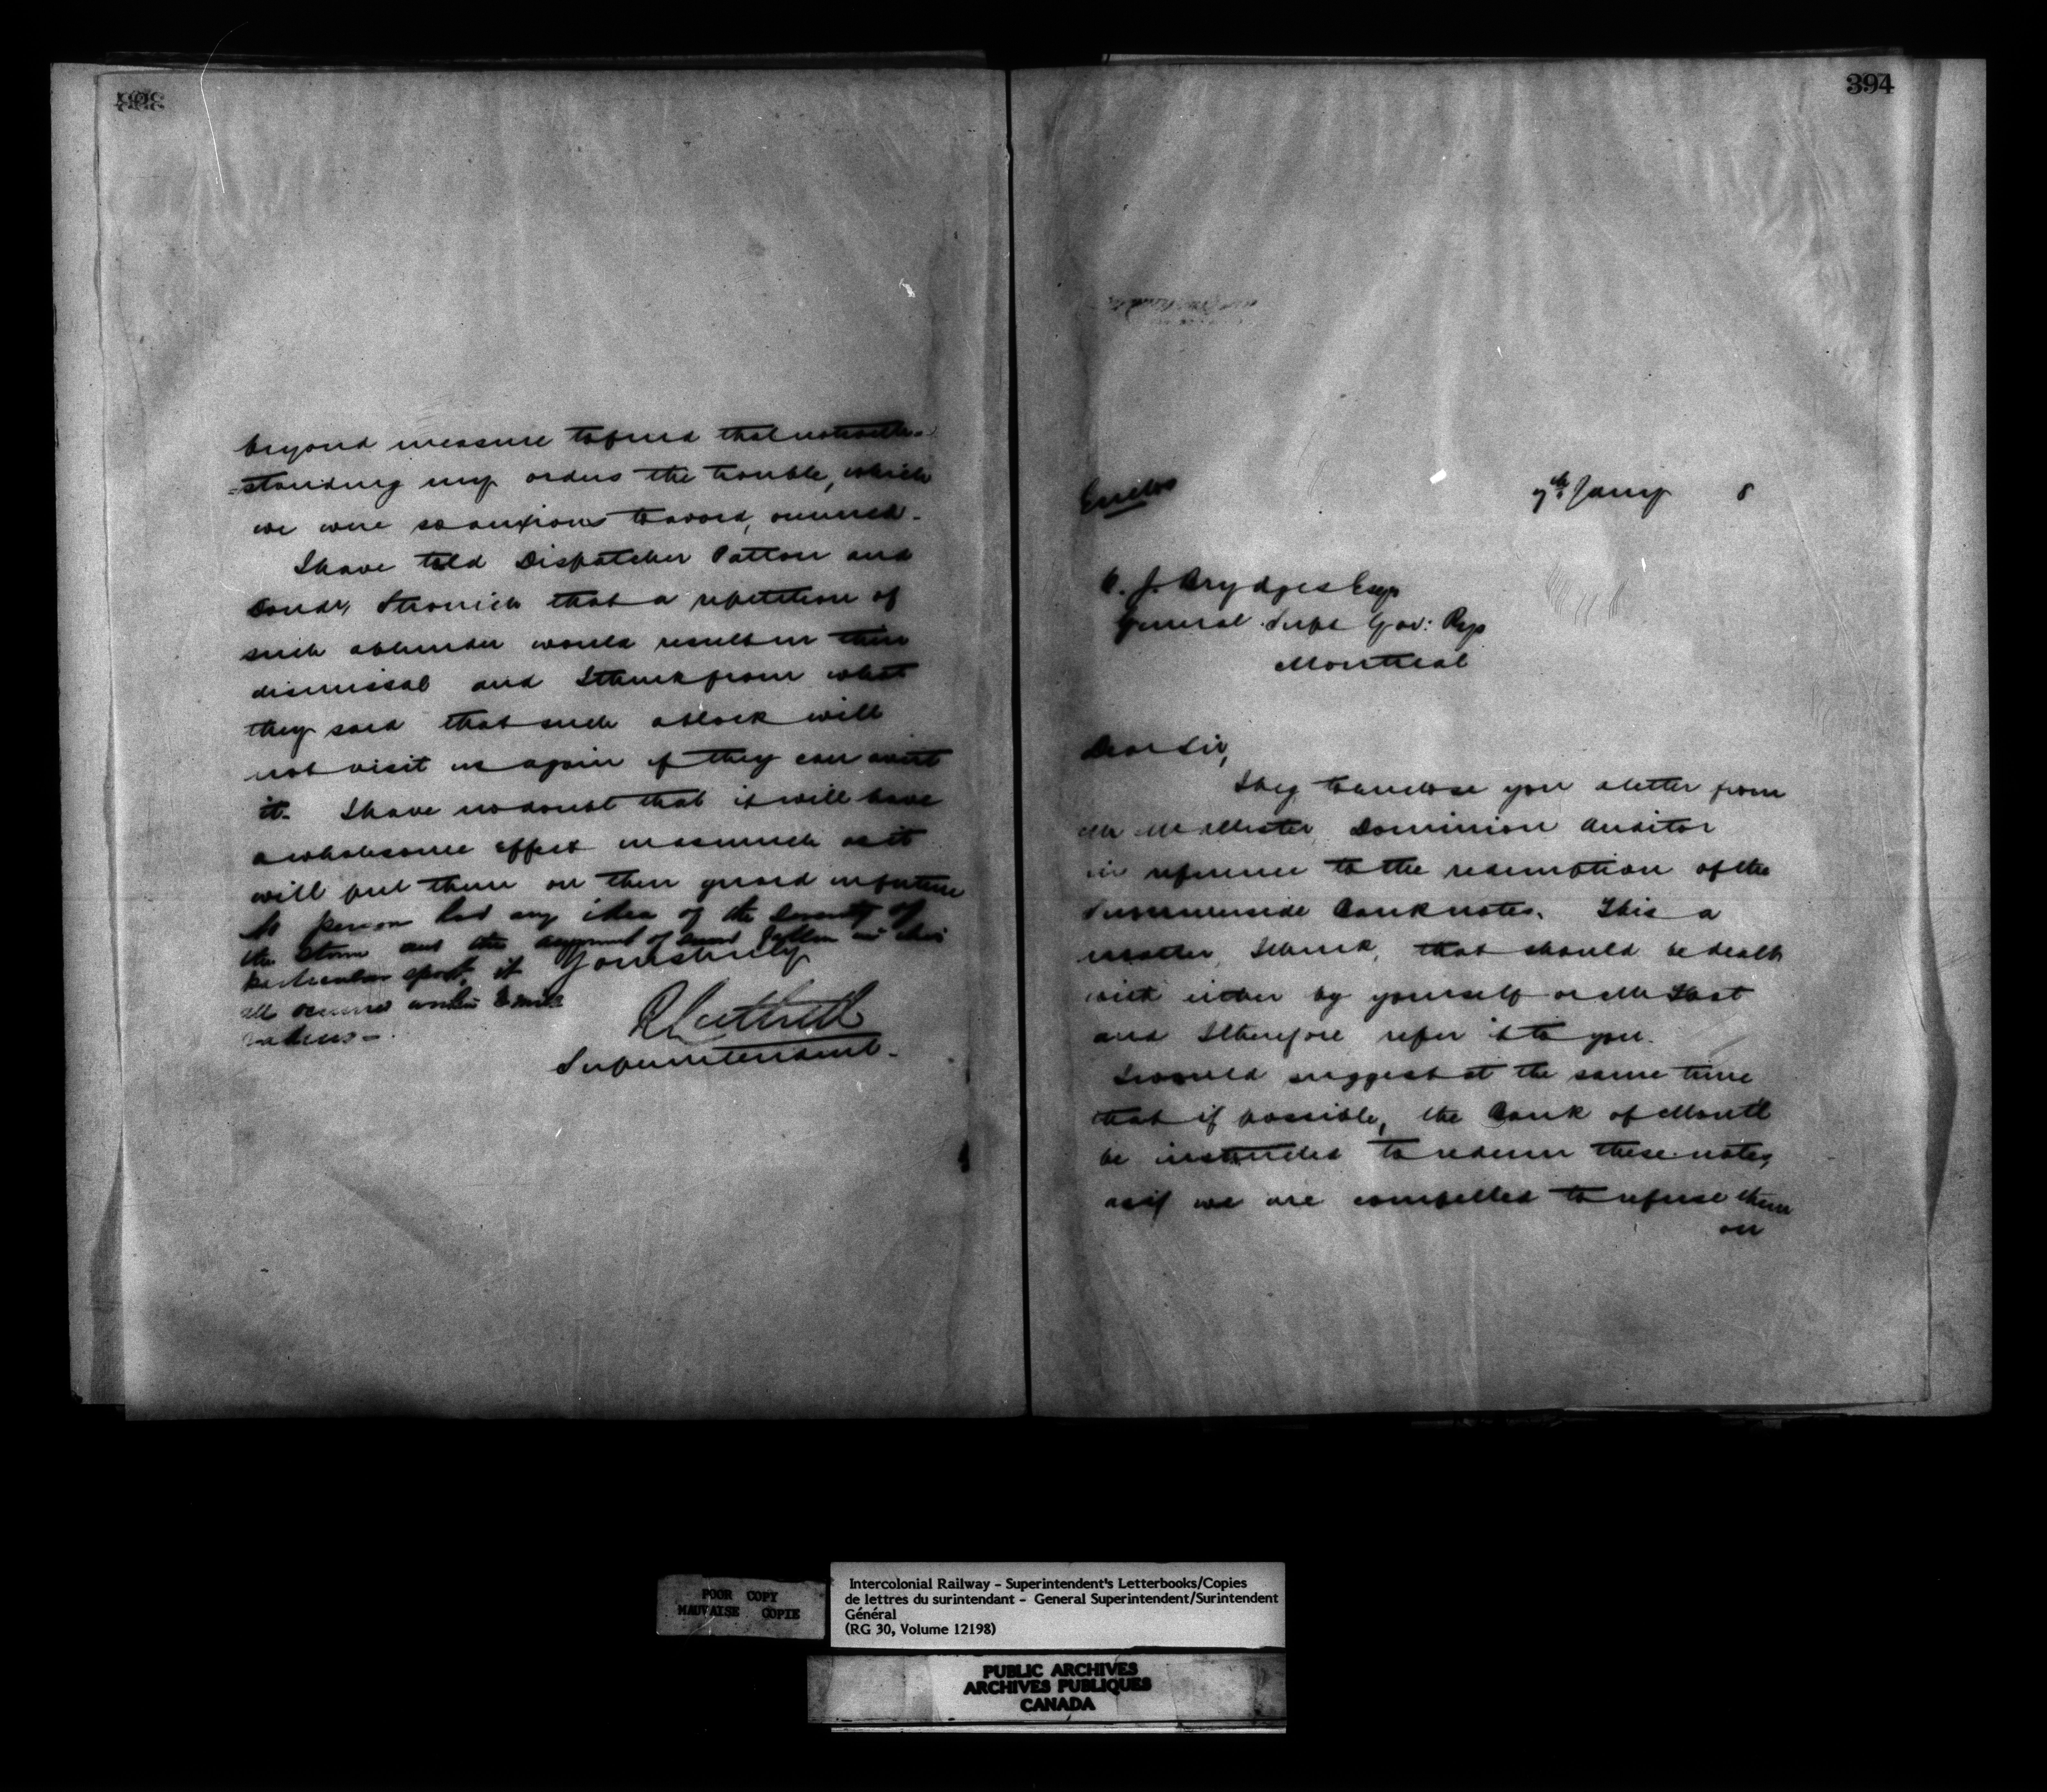 beyond measure to find that notwith-
=standing my orders the trouble, which
we were so anxious to avoid, occurred.
I have told Dispatcher Patton and
Condr, that a repetition of
such a blunder would result in their
dismissal and I think from what
they said that such a block will
not visit us again if they can avert
it. I have no doubt that it will have
a wholesome effect inasmuch as it
will put them on their guard in future
No person had any idea of the severity of
the storm and the amount of snow in this
particular spot, it
all occurred within 2 mile
radius -
Yours truly
Superintendent.
394
Enclos
7th Jany 8
C. J. Brydges Esqr
General Supt Gov: Rys
Montreal
Dear Sir,
I beg to enclose you a letter from
Mr Dominion Auditor
in reference to the redemption of the
Summerside Bank notes. This a
matter, I think, that should be dealt
with either by yourself or Mr
and I therefore refer it to you.
I would suggest at the same time
that if possible, the Bank of Montl
be instructed to redeem these notes,
as if we are compelled to refuse them
on
POOR COPY
MAUVAISE COPIE
Intercolonial Railway - Superintendent's Letterbooks/Copies
de lettres du surintendant - General Superintendent/Surintendent
Général
(RG 30, Volume 12198)
PUBLIC ARCHIVES
ARCHIVES PUBLIQUES
CANADA